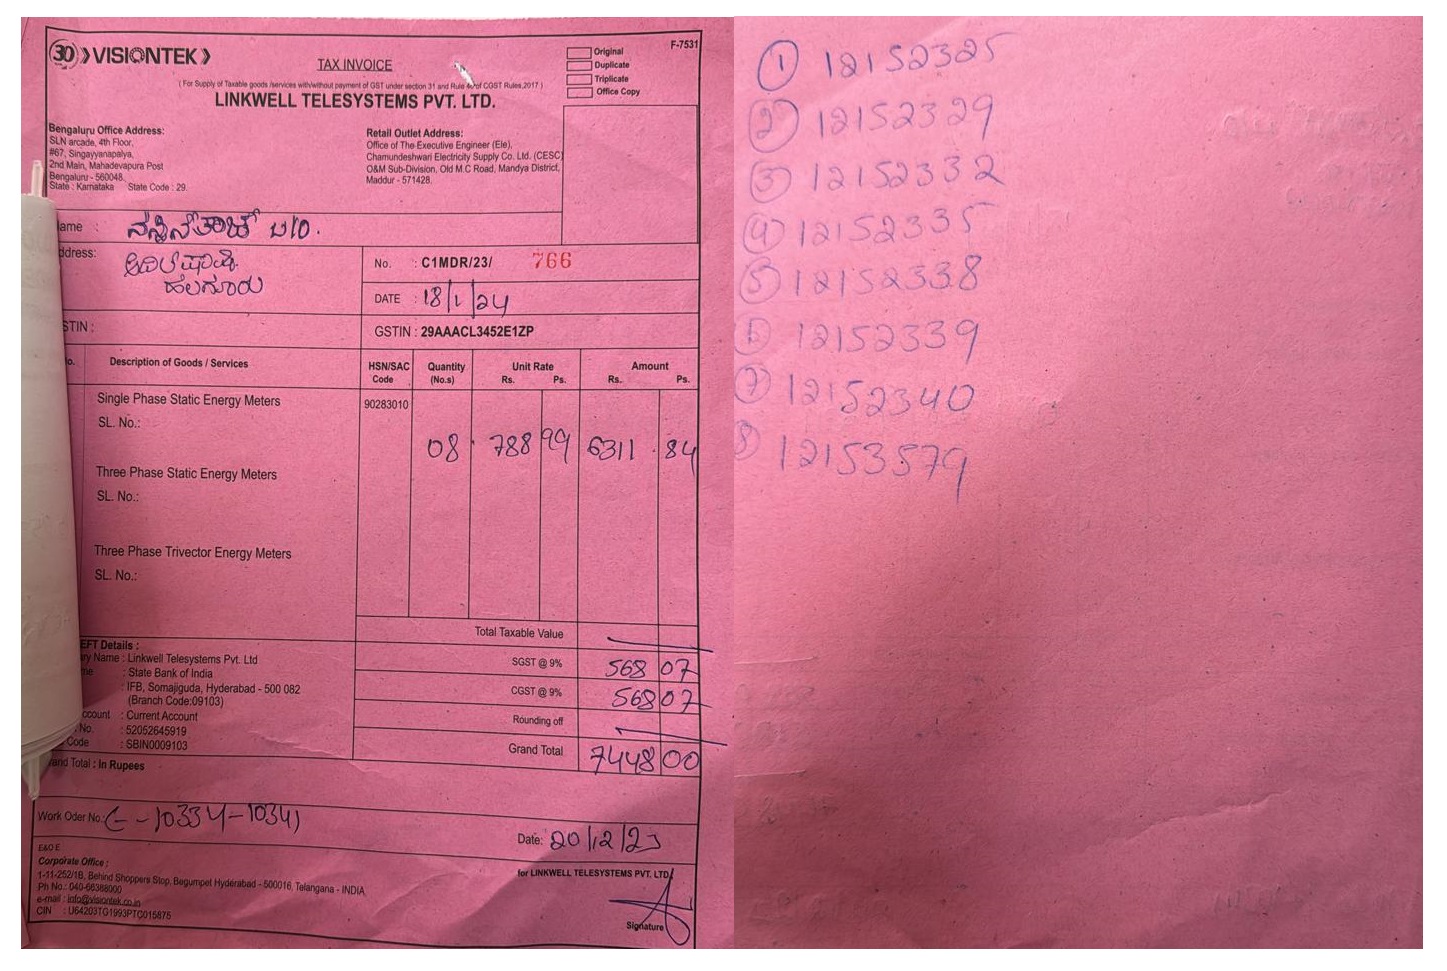 30 VISIONTEK
TAX INVOICE
Original
Duplicate
Triplicate
Office Copy
F-7531
( For Supply of Taxable goods /services with/without payment of GST under section 31 and Rule 46 of CGST Rules,2017 )
LINKWELL TELESYSTEMS PVT. LTD.
Bengaluru Office Address:
SLN arcade, 4th Floor,
#67, Singayyanapalya,
2nd Main, Mahadevapura Post
Bengaluru - 560048.
State : Karnataka State Code : 29.
Retail Outlet Address:
Office of The Executive Engineer (Ele),
Chamundeshwari Electricity Supply Co. Ltd. (CESC)
O&M Sub-Division, Old M.C Road, Mandya District,
Maddur - 571428.
ame :
ddress:
ಹಲಗೂರು
No. : C1MDR/23/ 766
DATE : 18/1/24
STIN :
GSTIN : 29AAACL3452E1ZP
o. Description of Goods / Services HSN/SAC Code Quantity (No.s) Unit Rate Rs. Ps. Amount Rs. Ps.
Single Phase Static Energy Meters 90283010
SL. No.:
08 788 99 6311 . 84
Three Phase Static Energy Meters
SL. No.:
Three Phase Trivector Energy Meters
SL. No.:
Total Taxable Value
EFT Details :
ry Name : Linkwell Telesystems Pvt. Ltd
me : State Bank of India
: IFB, Somajiguda, Hyderabad - 500 082
(Branch Code:09103)
ccount : Current Account
No. : 52052645919
Code : SBIN0009103
SGST @ 9% 568 07
CGST @ 9% 568 07
Rounding off
Grand Total 7448 00
and Total : In Rupees
Work Oder No.: 10334-10341
Date: 20/12/23
E&O E
Corporate Office :
1-11-252/1B, Behind Shoppers Stop, Begumpet Hyderabad - 500016, Telangana - INDIA
Ph No.: 040-66388000
e-mail : info@visiontek.co.in
CIN : U64203TG1993PTC015875
for LINKWELL TELESYSTEMS PVT. LTD
Signature
1 12152325
2 12152329
3 12152332
4 12152335
5 12152338
6 12152339
7 12152340
8 12153579